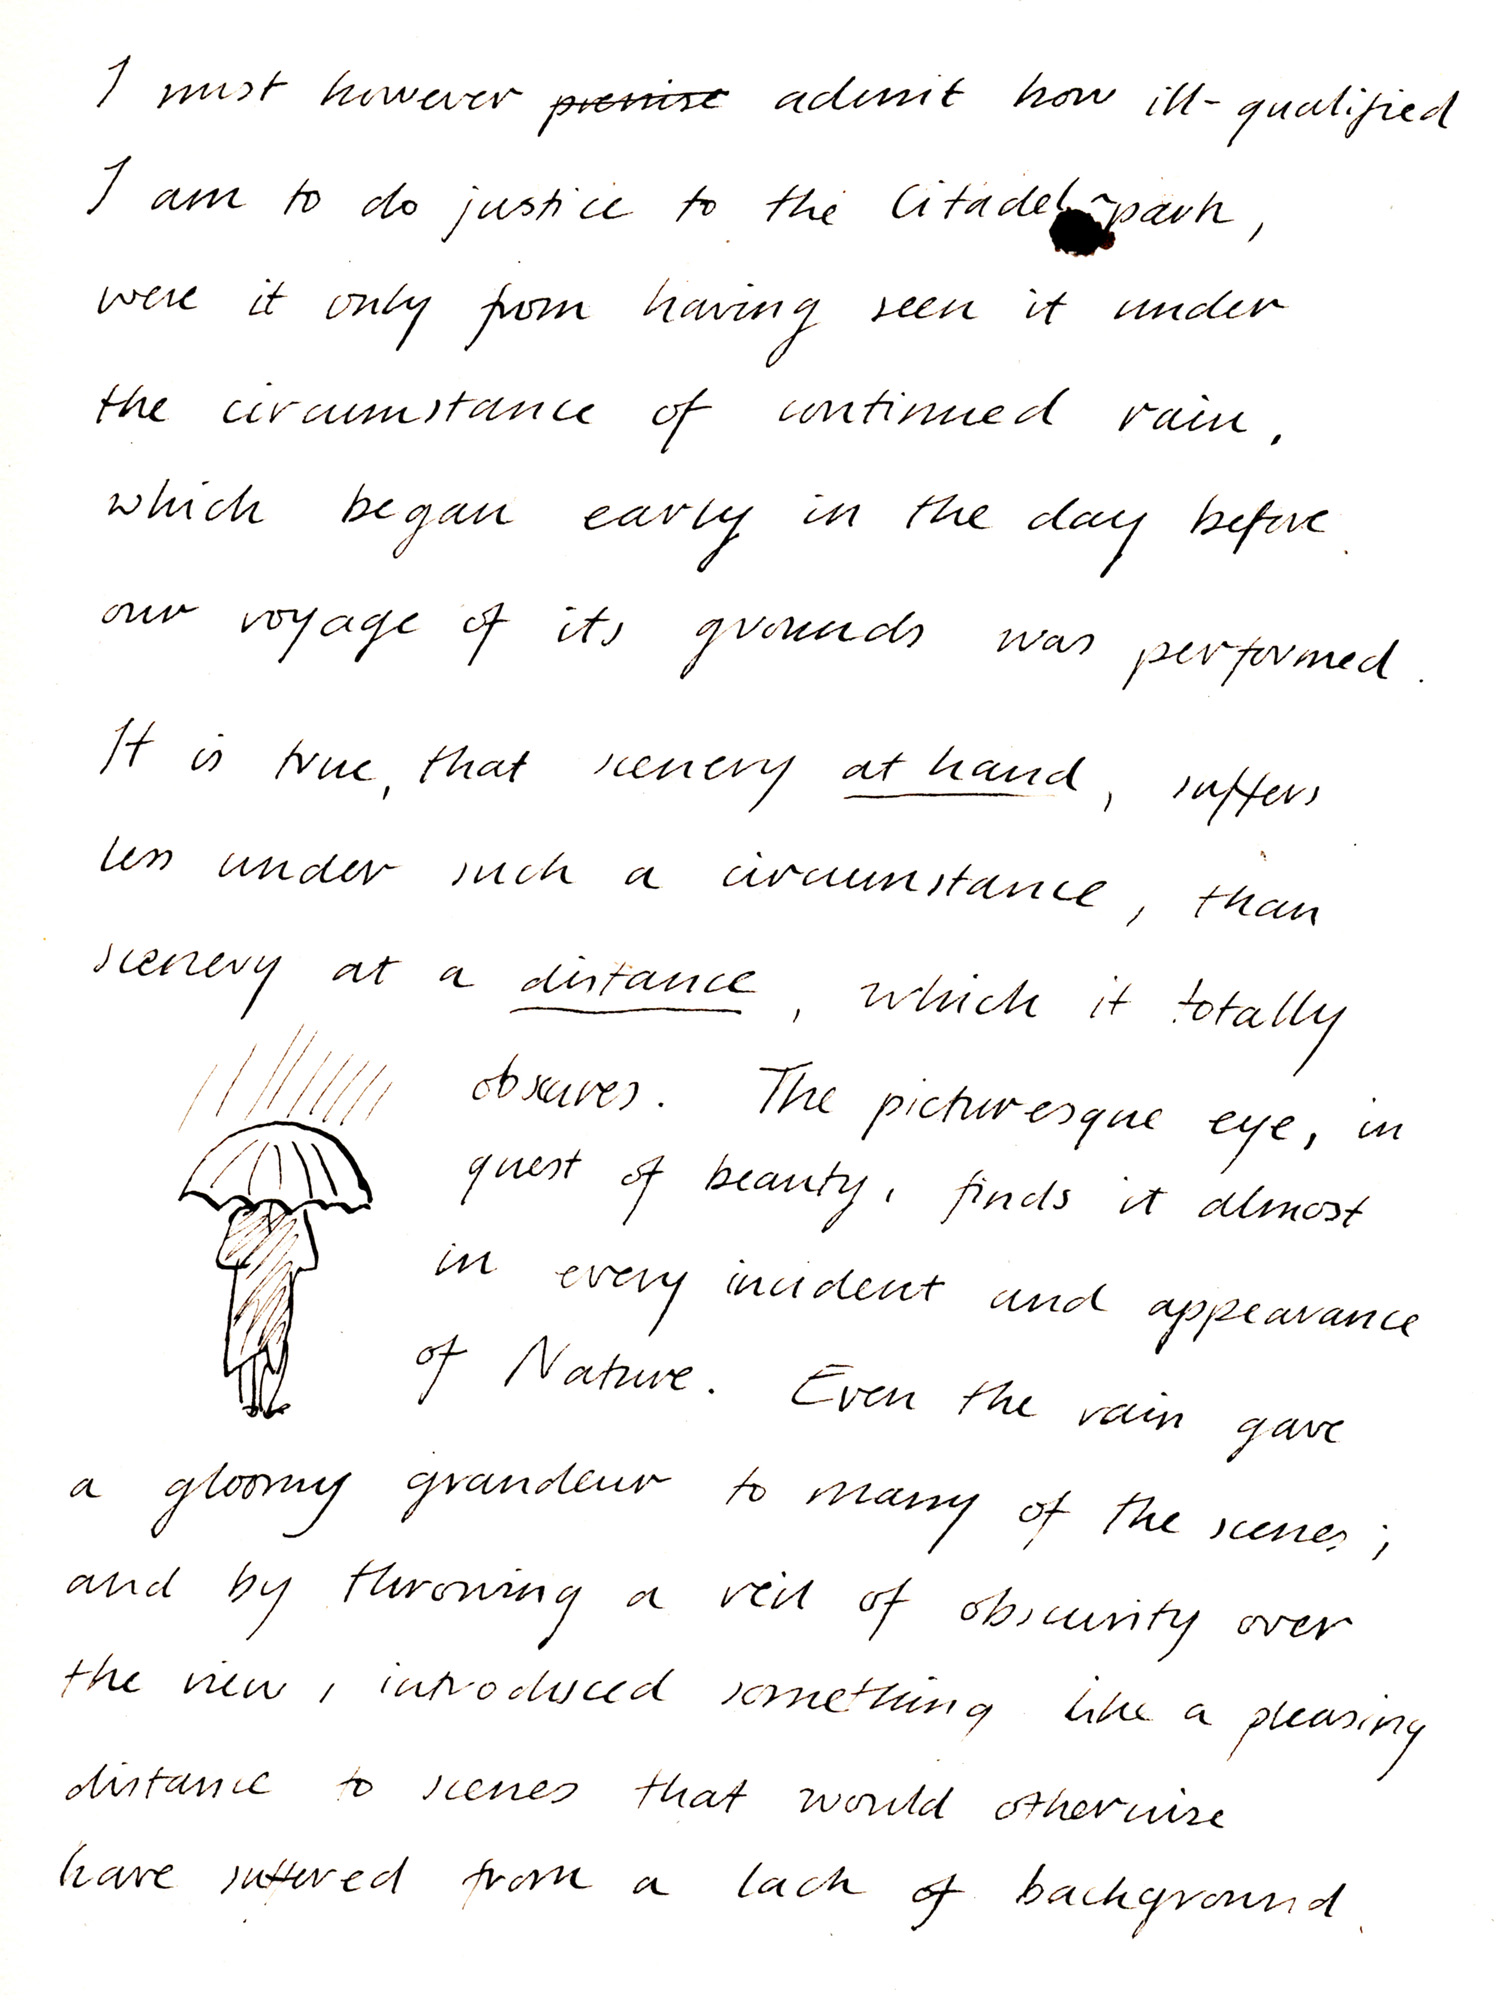 I must however premise admit how ill-qualified
I am to do justice to the Citadel-park,
were it only from having seen it under
the circumstance of continued rain,
which began early in the day before
our voyage of its grounds was performed.
It is true, that scenery at hand, suffers
less under such a circumstance, than
scenery at a distance, which it totally
obscures. The picturesque eye, in
quest of beauty, finds it almost
in every incident and appearance
of Nature. Even the rain gave
a gloomy grandeur to many of the scenes;
and by throwing a veil of obscurity over
the view, introduced something like a pleasing
distance to scenes that would otherwise
have suffered from a lack of background.